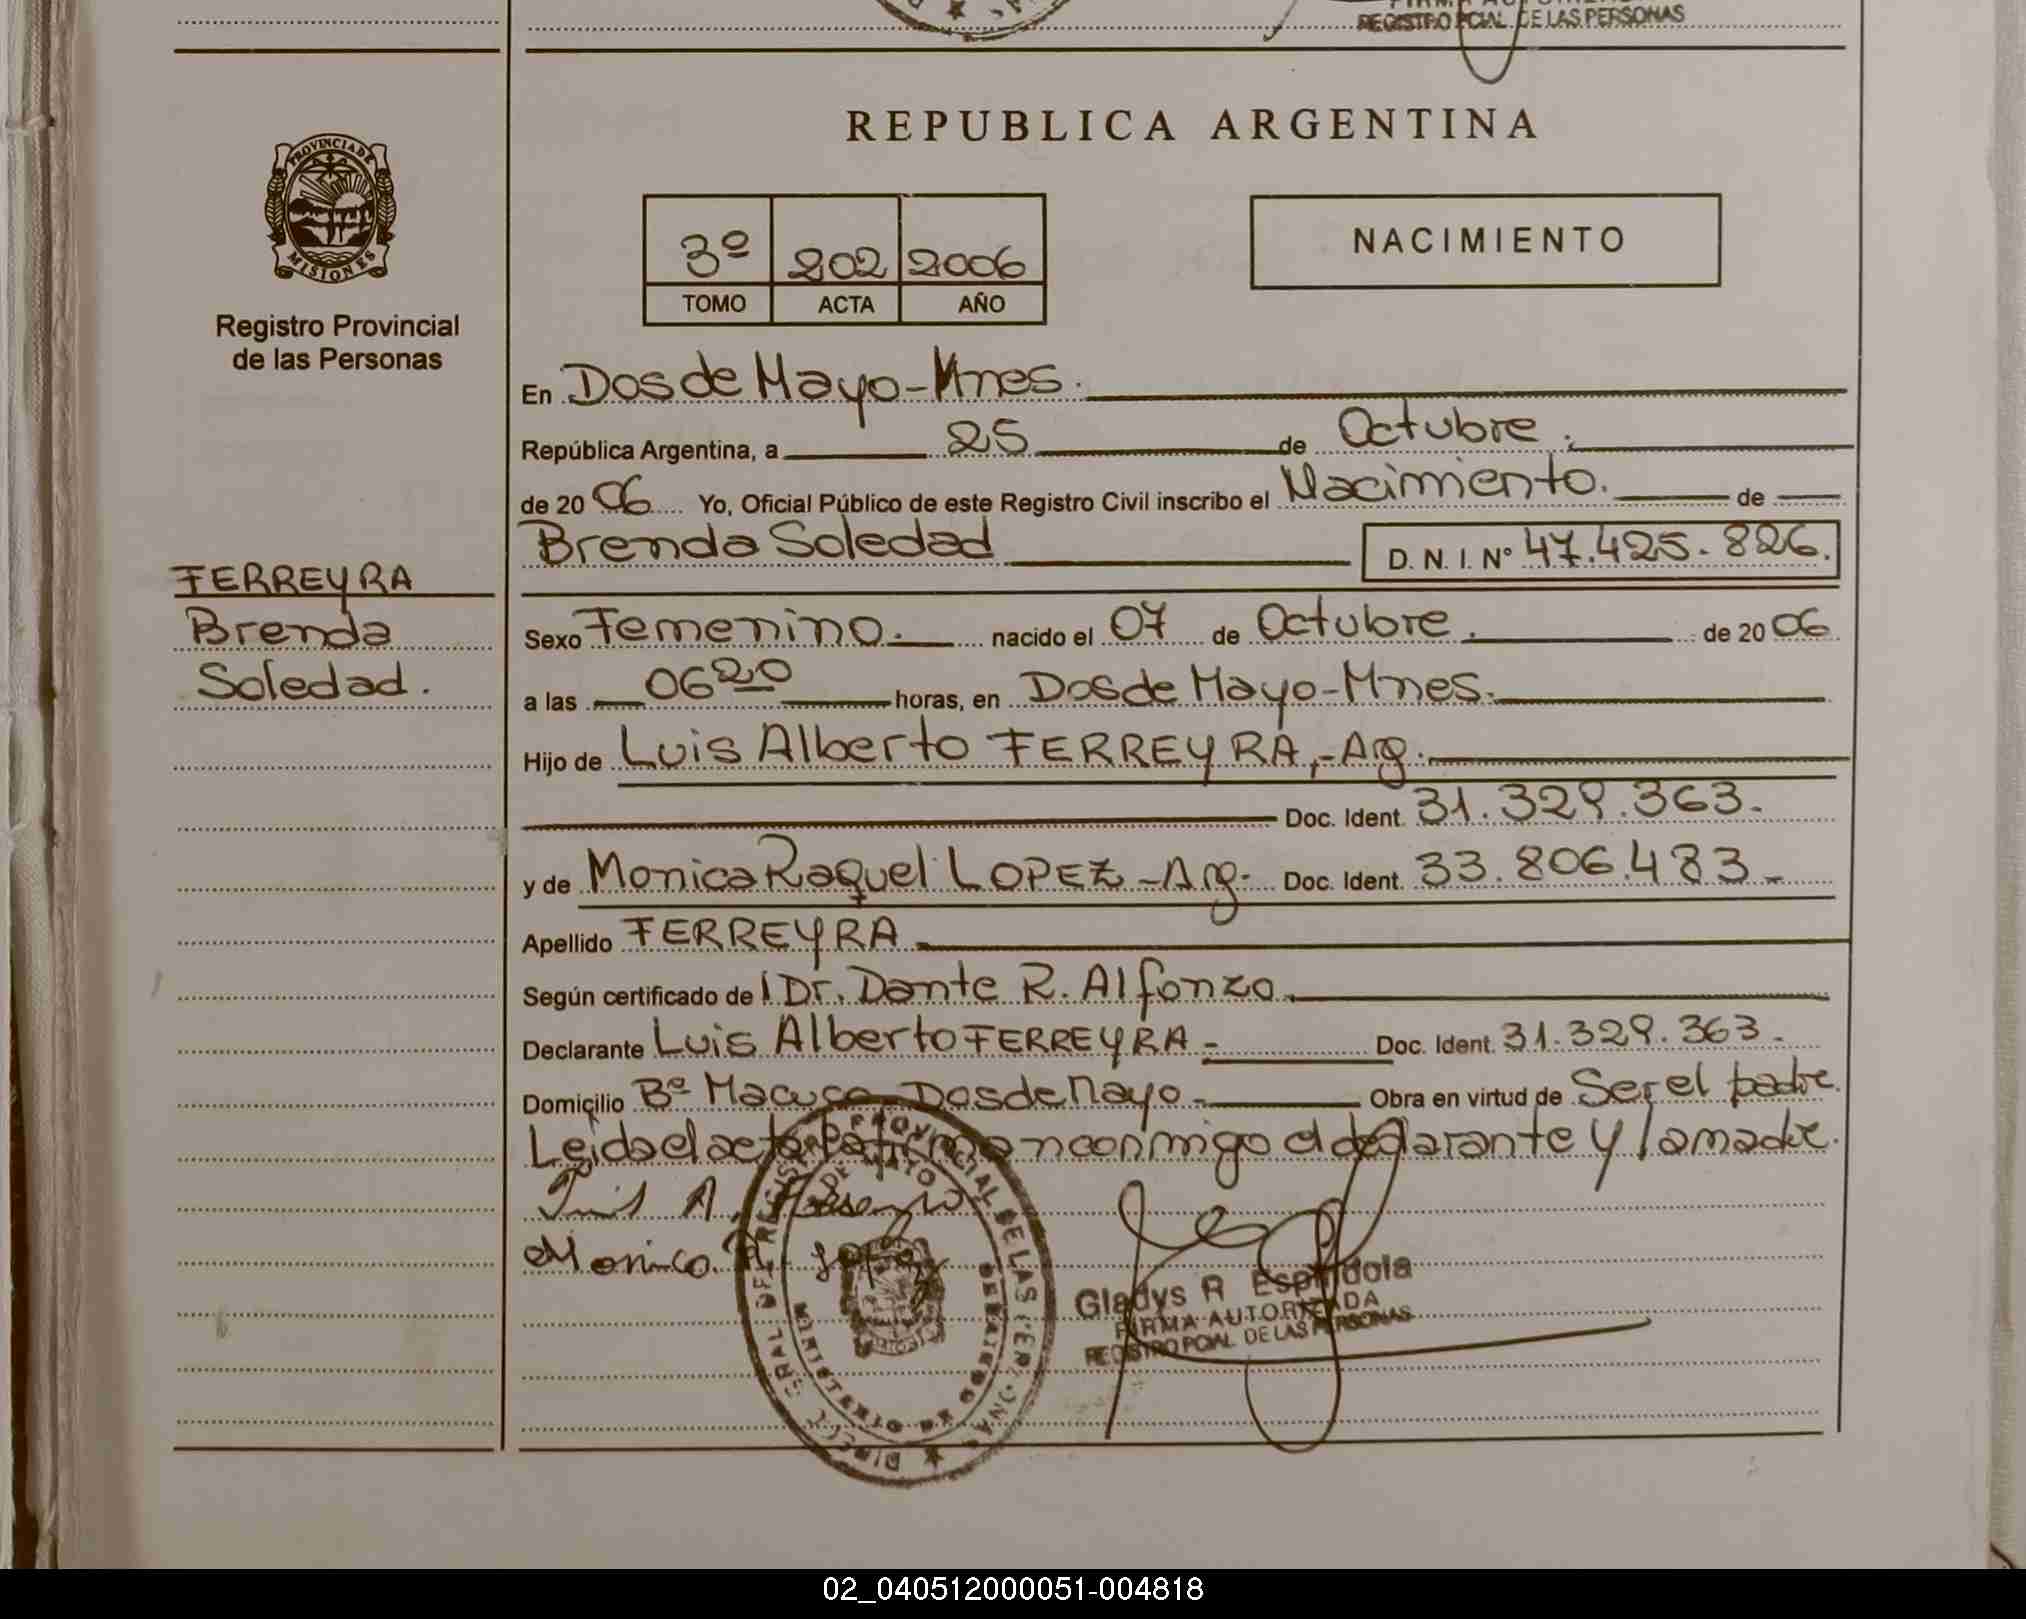 REGISTRO PCIAL DE LAS PERSONAS
PROVINCIA DE
MISIONES
Registro Provincial
de las Personas
REPUBLICA ARGENTINA
3º 202 2006
TOMO ACTA AÑO
NACIMIENTO
En Dos de Mayo-Mnes.
República Argentina, a 25 de Octubre.
de 2006 Yo, Oficial Público de este Registro Civil inscribo el Nacimiento. de
Brenda Soledad D. N. I. Nº 47.425.826.
FERREYRA
Brenda
Soledad.
Sexo Femenino. nacido el 07 de Octubre. de 2006
a las 06 20 horas, en Dos de Mayo-Mnes.
Hijo de Luis Alberto FERREYRA,-Arg.
Doc. Ident. 31.329.363.
y de Monica Raquel LOPEZ-Arg. Doc. Ident. 33.806.483-
Apellido FERREYRA
Según certificado de Dr. Dante R. Alfonzo
Declarante Luis Alberto FERREYRA- Doc. Ident. 31.329.363-
Domicilio Bº Macuco-Dos de Mayo- Obra en virtud de Ser el padre.
Leida el acta la firman conmigo el declarante y la madre.
Luis A.
Monica R. Lopez
Gladys R Espindola
FIRMA AUTORIZADA
REGISTRO PCIAL DE LAS PERSONAS
02_040512000051-004818